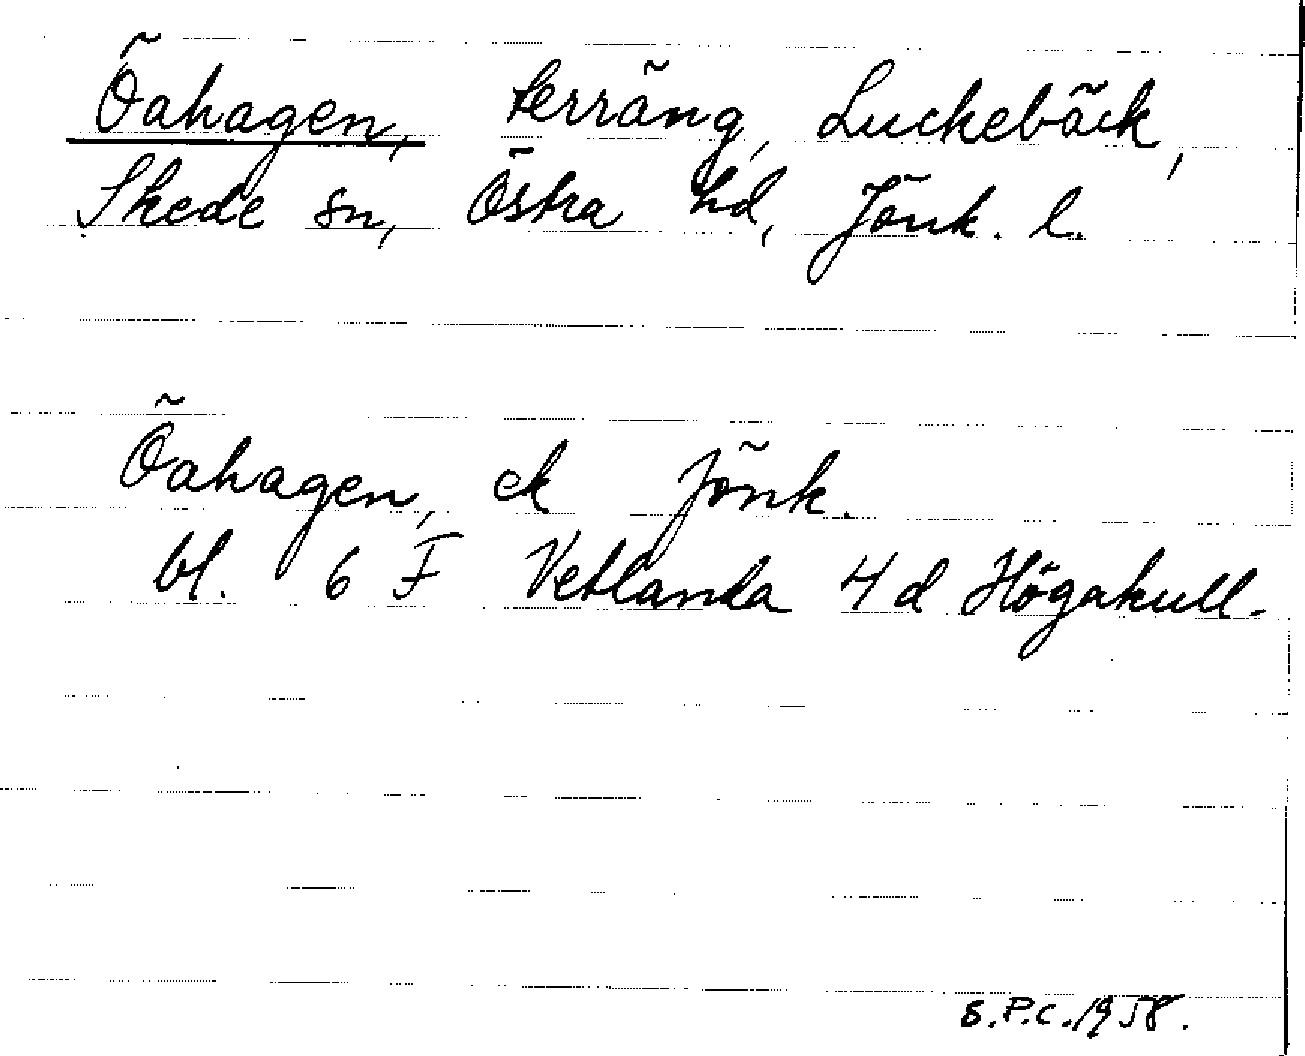 Öahagen, terräng, Luckebäck,
Skede sn, Östra hd, Jönk. l.
Öahagen, ek Jönk.
bl. 6 F Vetlanda 4 d Högakull.
S.P.C. 1958.